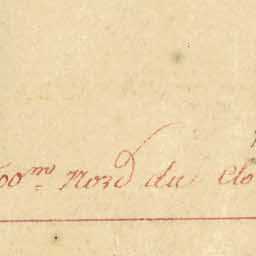 00ᵐ Nord du clo